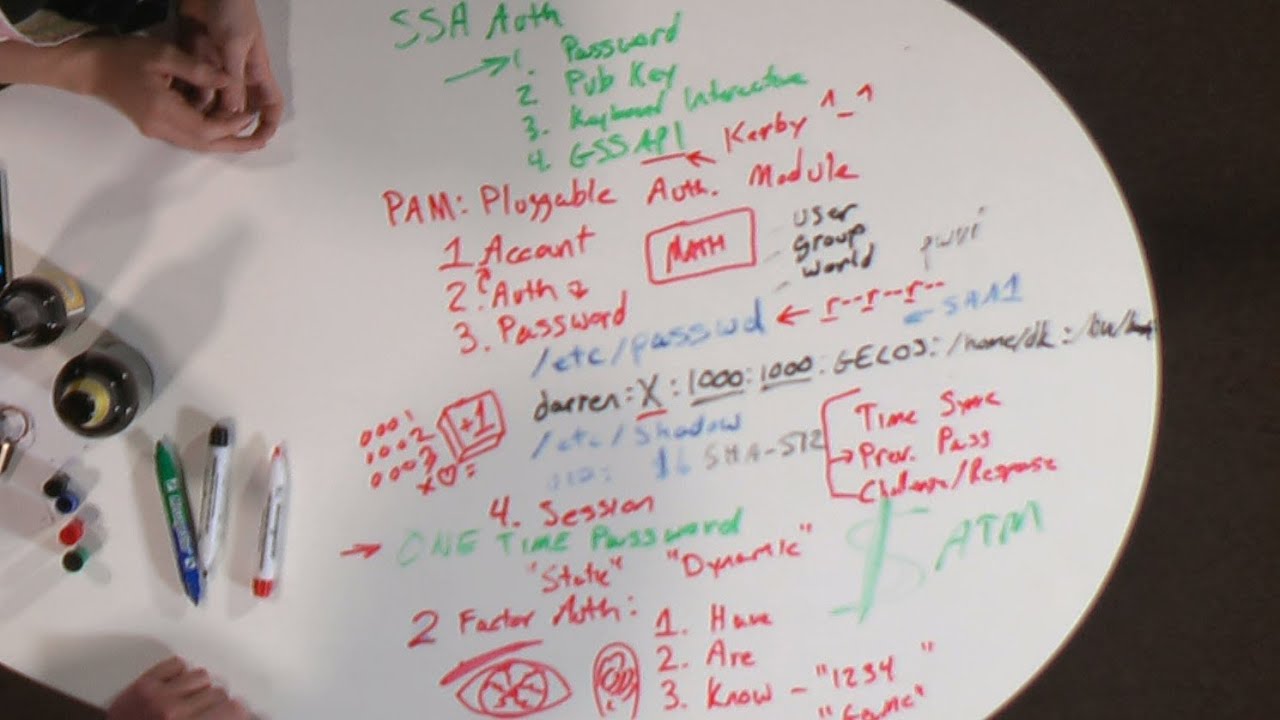 SSA Auth
1. Password
2 Pub Key
3. Keyboard Interactive
4. GSSAPI
Kerby ^_^
PAM: Pluggable Auth. Module
1 Account
2. Auth
3. Password
MATH
user
group
world
/etc/passwd ← r--r--r--
← SHA1
darren: X : 1000: 1000: GECOS: /home/dk :
0001
1002
0003
+1
/etc/shadow
$6 SHA-512
Time Sync
Prev. Pass
Challenge/Response
4. Session
ONE TIME Password
"Static" "Dynamic"
$ ATM
2 Factor Auth:
1. Have
2. Are
3. Know - "1234"